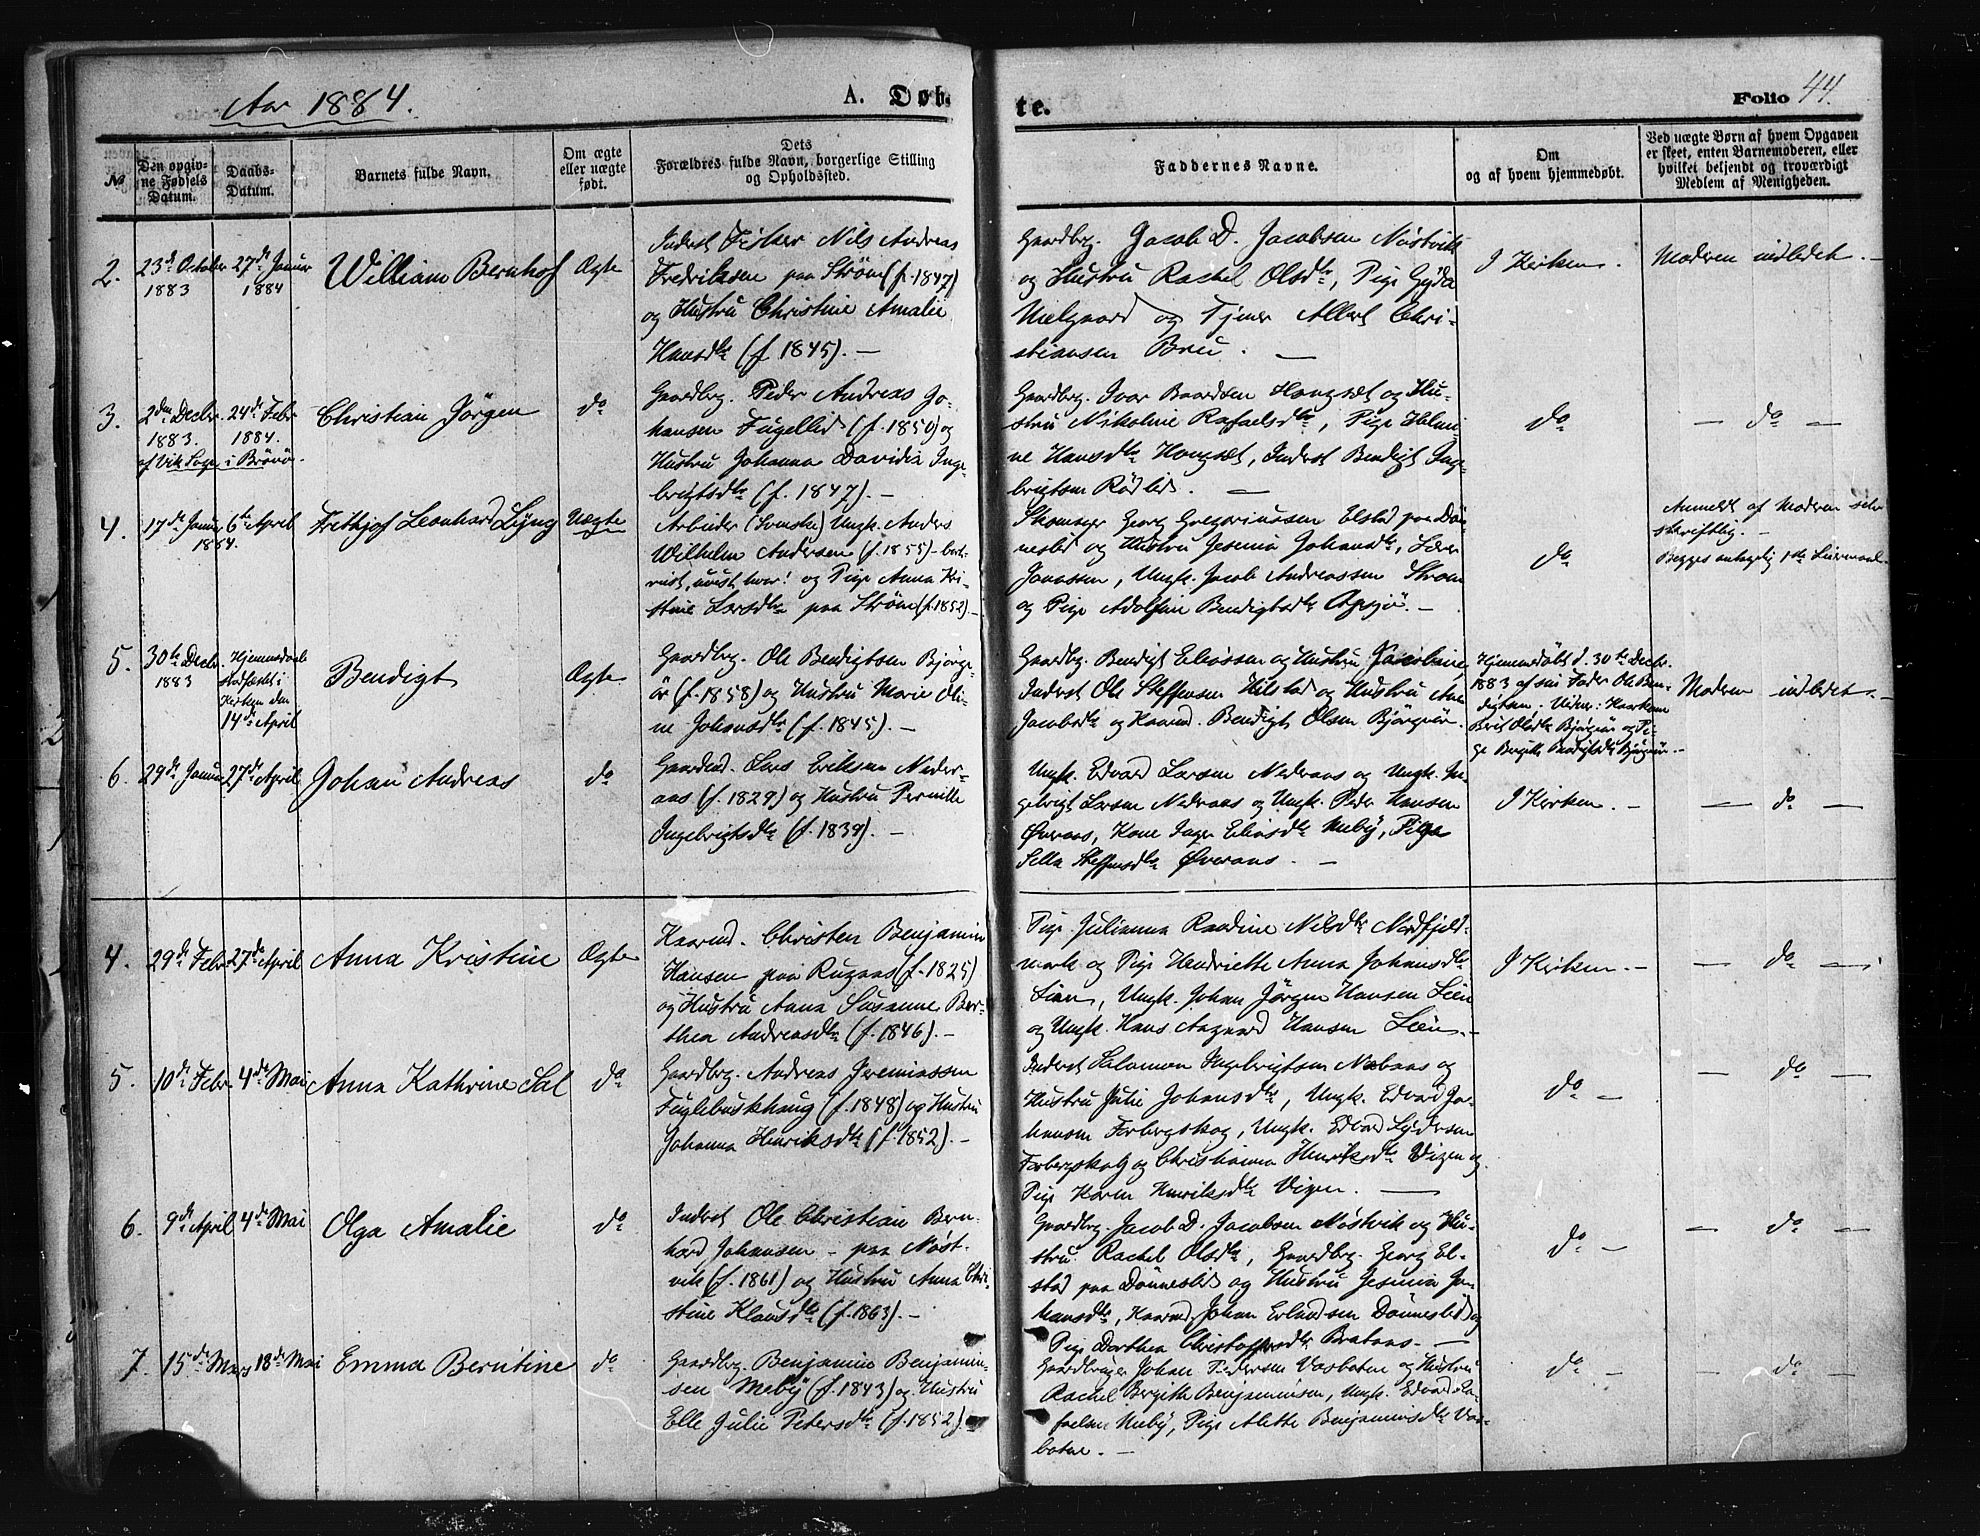 Aar 1884.
A. Døb-
te.
Folio 44.
No
Den opgiv-
ne Fødsels
Datum.
Daabs-
Datum.
Barnets fulde Navn.
Om ægte
eller uægte
født.
Dets
Forældres fulde Navn, borgerlige Stilling
og Opholdssted.
Faddernes Navne.
Om
og af hvem hjemmedøbt.
Ved uægte Børn af hvem Opgaven
er skeet, enten Barnemoderen, eller
hvilket betjendt og troværdigt
Medlem af Menigheden.
2.
23de October
1883
27de Januar
1884
William Bernhof
Ægte
Inderst Fisker Nils Andreas
Fredriksen paa Strøm (f. 1847)
og Hustru Christine Amalie
Hansdtr (f. 1845). —
Gaardbrg. Jacob D. Jacobsen Nøstvik
og Hustru Rachel Olsdtr, Pige Gyda
og Tjener Albert Chri-
stiansen Breu. —
I Kirken. —
Moderen indledet. —
3.
2den Decbr
1883.
af Vik Sogn i Brønø.
24de Febr
1884.
Christian Jørgen
do
Gaardbrg. Peder Andreas Jo-
hansen Fugellid (f. 1850) og
Hustru Johanna Davidia Inge-
brigtsdtr (f. 1847). —
Gaardbrg. Ivar Baardsen Hongsæt og Hu-
stru Nikoline Rafaelsdtr, Pige
ne Hansdtr Hongsæt, Inderst Bendigt Ing-
brigtsen Rødlid. —
do
— do —
4.
17de Januar
1884.
6te April
Frithjof Leonhard Lyng
Uægte
Arbeider (Svenske) Ungk. Anders
Wilhelm Andersen (f. 1855) - bort-
reist, uvist hvor! og Pige Anna Kri-
stine Larsdtr paa Strøm (f. 1852). —
Georg Gregoriussen Elstad paa Døn-
neslid og Hustru Jesmia Johansdtr,
Jonassen, Ungk. Jacob Andreassen Strøm
og Pige Adolfine Bendigtsdtr. —
do
Anmeldt af Moderen selv
skriftlig. —
Begges antagelig 1ste Leiermaal.
5.
30te Decbr.
1883
Hjemmedøbt
stadfæstet i
Kirken den
14de April
Bendigt
Ægte
Gaardbrg. Ole Bendigtsen Bjørge-
ør (f. 1858) og Hustru Marie Oli-
ne Johansdtr (f. 1845). —
Gaardbrg. Bendigt Eliassen og Hustru Jacobine
Inderst Ole Steffensen Hilstad og Hustru Ane
Jacobsdtr og Kaarmd. Bendigt Olsen Bjørgeør.
Hjemmedøbt d. 30te Decbr.
1883 af sin Fader Ole Ben-
digtsen. Vidner: Kaarkone
Berit Olsdtr Bjørgeør og Pi-
ge Bergitte Bendigtsdtr Bjørgeør. —
Moderen indledet. —
6.
29de Januar
27de April
Johan Andreas
do
Gaardmd. Lars Eriksen Neder-
aas (f. 1829) og Hustru Pernille
Ingebrigtsdtr (f. 1839). —
Ungk. Edvard Larsen Nederaas og Ungk. In-
gebrigt Larsen Nedraas og Ungk. Peder Hansen
Øveraas, Kone Inger Eliasdtr Meby, Pige
Sella Steffensdtr Øveraas. —
I Kirken. —
— do —
4.
29de Febr
27de April
Anna Kristine
Ægte
Kaarmd. Christen Benjamin
Hansen paa Rugaas (f. 1825)
og Hustru Anna Susanne Ber-
thea Andreasdtr (f. 1846). —
Pige Julianna Raadine Nilsdtr Nordfjeld-
mark og Pige Henriette Anna Johansdtr
Lien, Ungk. Johan Jørgen Hansen Lien
og Ungk. Hans Aagaard Hansen Lien. —
I Kirken. —
— do —
5.
10de Febr.
4de Mai
Anna Kathrine Sal
do
Gaardbrg. Andreas Jeremiassen
Fuglebuskhaug (f. 1848) og Hustru
Johanna Henriksdtr (f. 1852). —
Inderst Salamon Ingebrigtsen Nebaas og
Hustru Julie Johansdtr, Ungk. Edvard Jo-
hansen Forbergskog, Ungk. Edvard Lydersen
Forbergskog og Christianna Henriksdtr Vigen og
Pige Karen Henriksdtr Vigen. —
do —
— do —
6.
9de April
4de Mai
Olga Amalie
do
Inderst Ole Christian Bern-
hard Johansen - paa Nøst-
vik (f. 1861) og Hustru Anna Chri-
stine Klausdtr (f. 1863). —
Gaardbrg. Jacob D. Jacobsen Nøstvik og Hu-
stru Rachel Olsdtr, Gaardbrg. Georg El-
stad paa Dønneslid og Hustru Jesmia Jo-
hansdtr, Kaarmd. Johan Erlandsen Dønneslid og
Pige Dorthea Christoffersdtr Brataas. —
do —
— do —
7.
15de Mars
18de Mai
Emma Berntine
do
Gaardbrg. Benjamin Benjamin-
sen Meby (f. 1843) og Hustru
Elle Julie Petersdtr (f. 1852). —
Gaardbruger Johan Pedersen Vasbotn og Hustru
Rachel Bergitte Benjaminsen, Ungk. Edvard Ra-
faelsen Meby, Pige Alette Benjaminsdtr Vas-
botn. —
do —
— do —